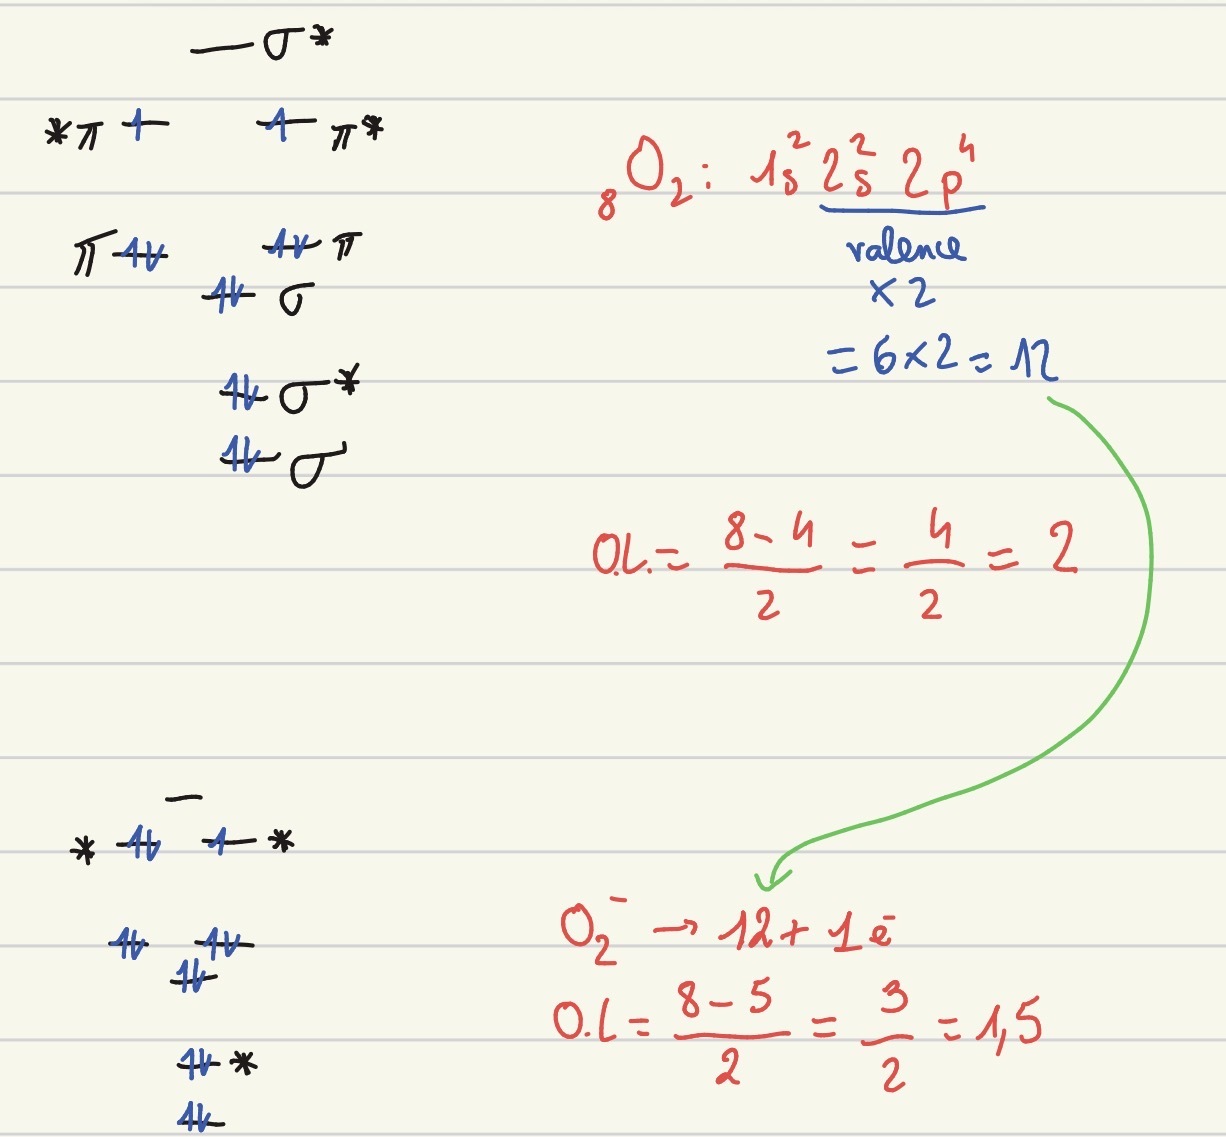 σ*
*π ↿ ↿ π*
π ↿⇂ ↿⇂ π
↿⇂ σ
↿⇂ σ*
↿⇂ σ
₈O₂: 1s² 2s² 2p⁴
valence
× 2
= 6 × 2 = 12
O.L. = (8 - 4)/2 = 4/2 = 2
* ↿⇂ ↿ *
↿⇂ ↿⇂
↿⇂
↿⇂ *
↿⇂
O₂⁻ → 12 + 1 e⁻
O.L = (8 - 5)/2 = 3/2 = 1,5